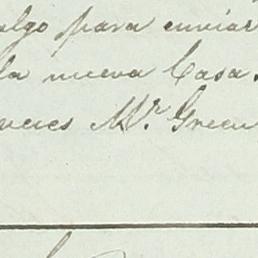 algo para enviar
la nueva Casa.
veces Mr. Green